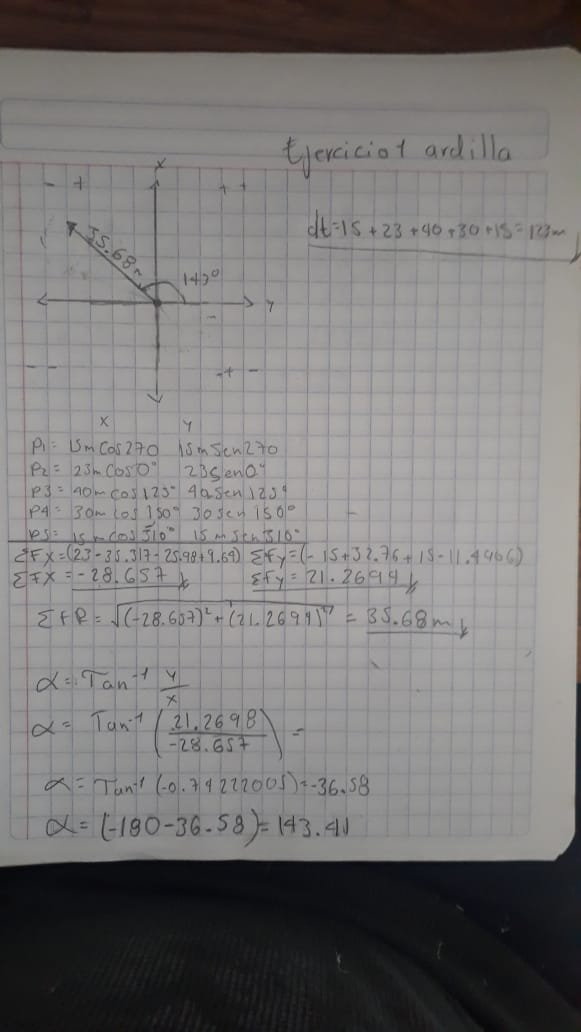 Ejercicio 1 ardilla
x
- +
+ +
dt=15+23+40+30+15=123m
35.68m
143°
y
-
- -
- + -
x y
P1= 15m Cos 270 15m Sen 270
P2= 23m Cos 0° 23 Sen 0°
P3= 40m cos 125° 40 Sen 125°
P4= 30m cos 150° 30 sen 150°
P5= 15m cos 310° 15 m sen 310°
ΣFx=(23-35.317-25.98+9.64) ΣFy=(-15+32.76+15-11.4906)
ΣFx=-28.657 ΣFy=21.2694
ΣFR=√(-28.657)²+(21.2694)² = 35.68m
α= Tan⁻¹ y/x
α= Tan⁻¹ (21.2698/-28.657) =
α= Tan⁻¹ (-0.74222005)=-36.58
α= (-180-36.58)=143.41